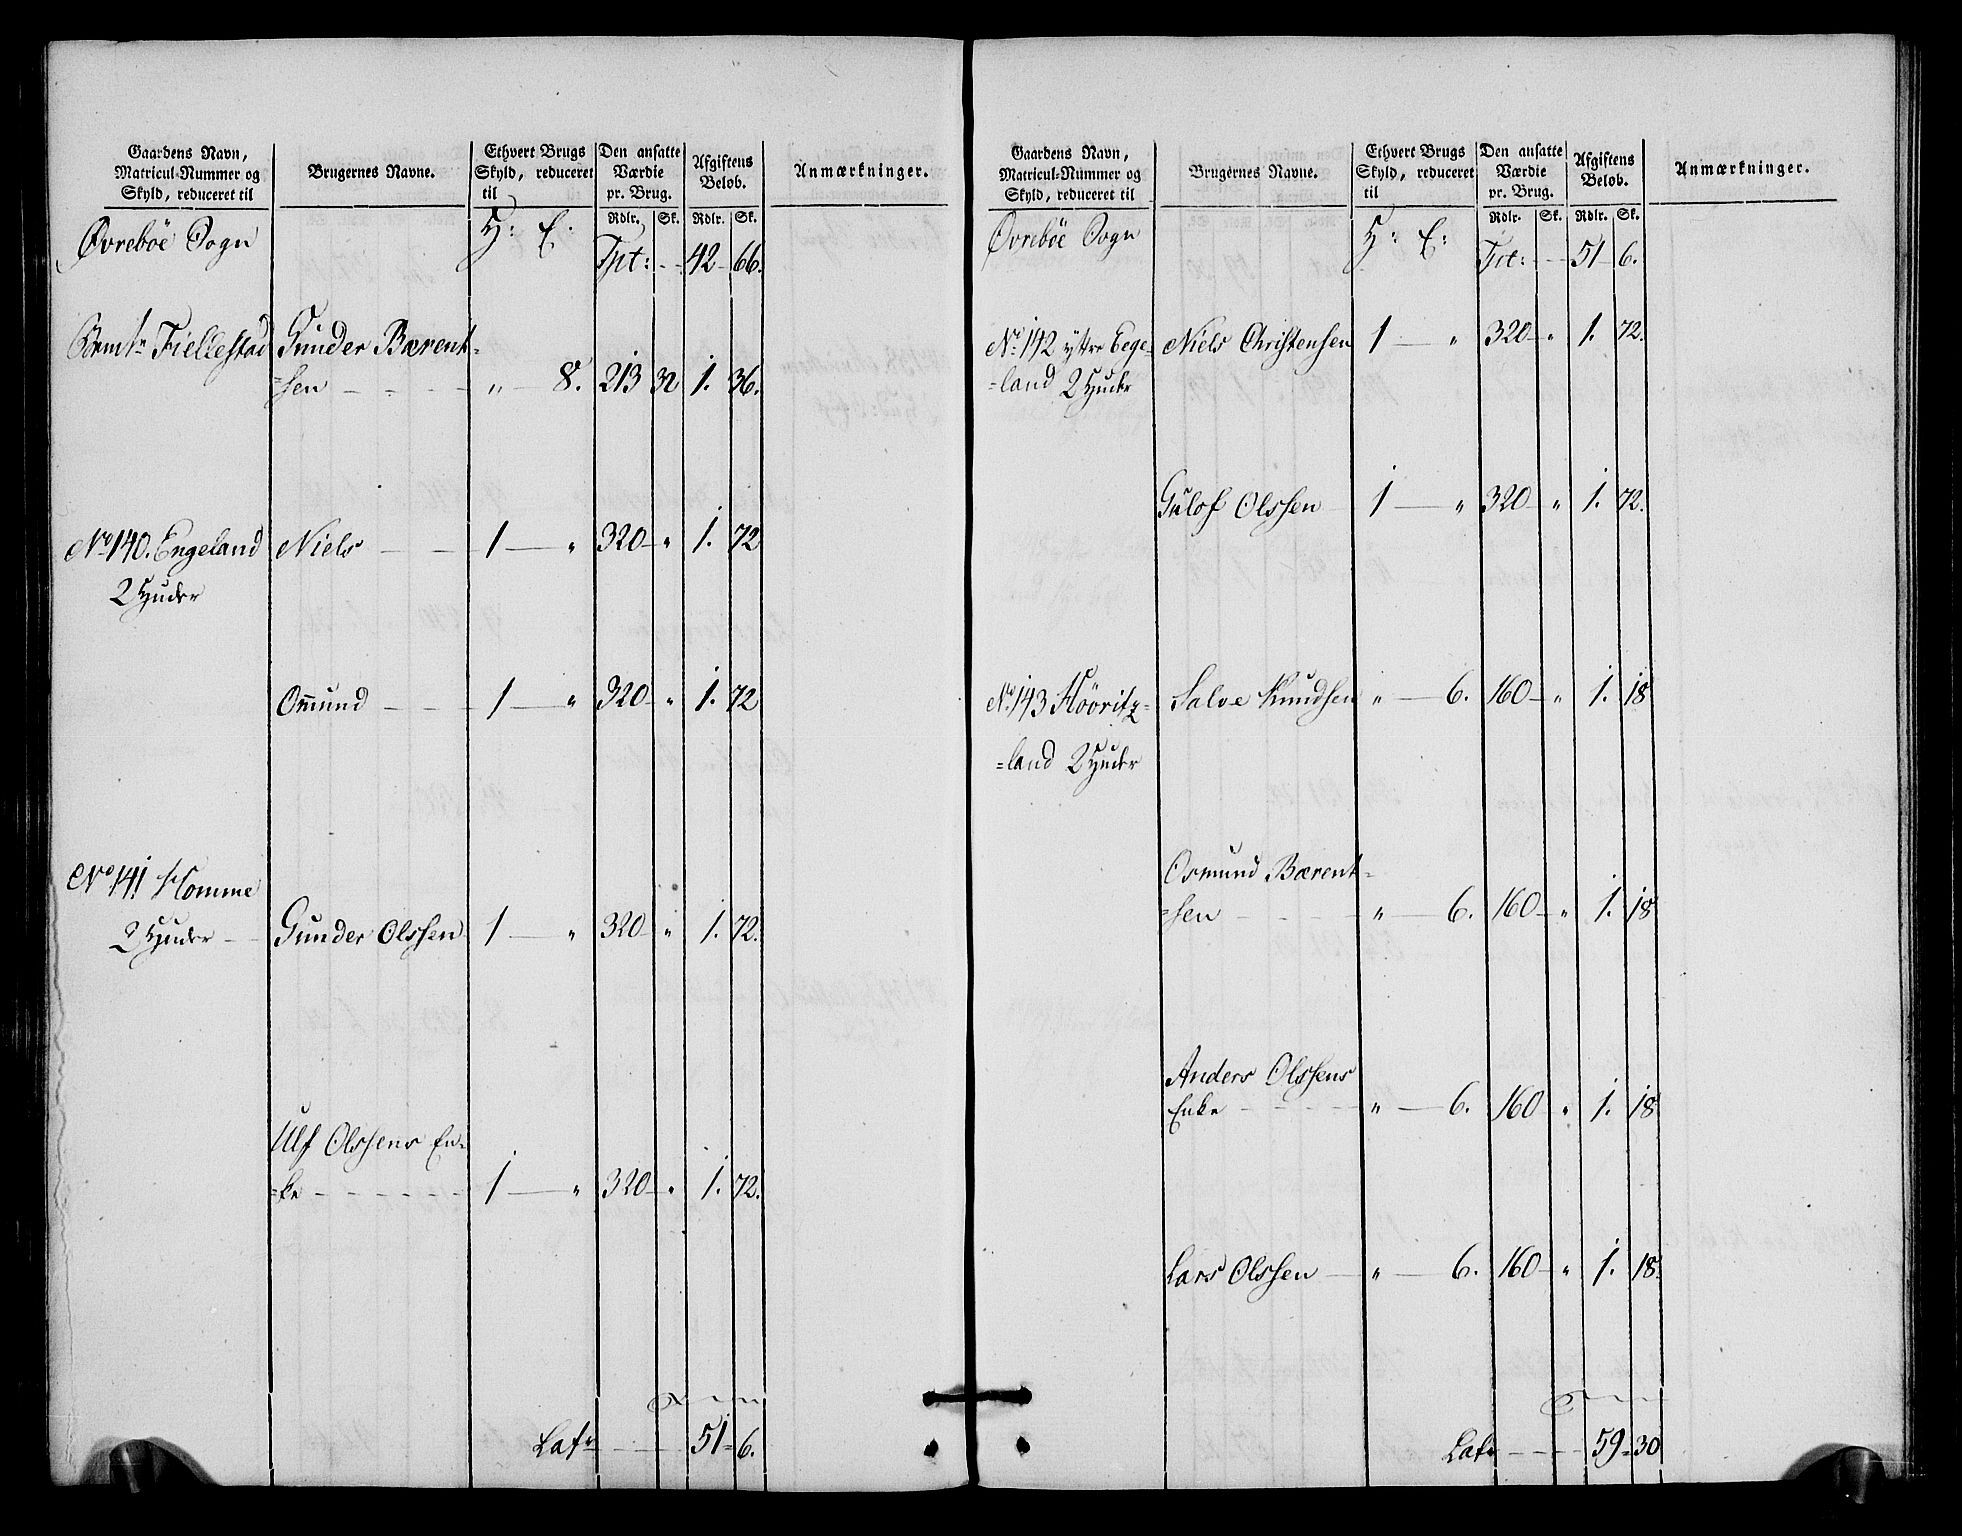 Gaardens Navn, Matricul-Nummer og Skyld, reduceret til | Brugernes Navne. | Ethvert Brugs Skyld, reduceret til | Den ansatte Værdie pr. Brug. | Afgiftens Beløb. | Anmærkninger.
Rdlr. | Sk. | Rdlr. | Sk.
Øvrebøe Sogn H: E: Tpt: 42 66.
Bemte Fiellestad Gunder Bærent-
=sen „ 8. 213 32 1. 36.
No 140. Engeland Niels 1 „ 320 „ 1. 72
2 Huder
Omund 1 „ 320 „ 1. 72
No 141 Homme
2 Huder Gunder Olssen 1 „ 320 „ 1. 72.
Ulf Olssens En-
=ke 1 „ 320 „ 1. 72.
Latr 51 6.
Gaardens Navn, Matricul-Nummer og Skyld, reduceret til | Brugernes Navne. | Ethvert Brugs Skyld, reduceret til | Den ansatte Værdie pr. Brug. | Afgiftens Beløb. | Anmærkninger.
Rdlr. | Sk. | Rdlr. | Sk.
Øvrebøe Sogn H: E: Tpt: 51 6.
No 142 yttre Eege- Niels Christensen 1 „ 320 „ 1. 72.
=land 2 Huder
Gulof Olssen 1 „ 320 „ 1. 72.
No 143 Høöritz- Salve Knudsen „ 6. 160 „ 1. 18
=land 2 Huder
Osmund Bærent-
=sen „ 6. 160 „ 1. 18
Anders Olssens
Enke „ 6. 160 „ 1. 18
Lars Olssen „ 6. 160 „ 1. 18.
Latr 59 30